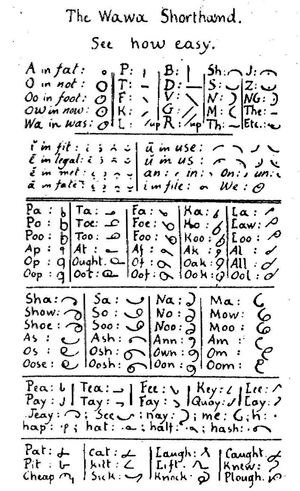 The Wawa Shorthand.
See how easy.
A in fat: P: B: Sh: J:
O in not: T: D: S: Z:
Oo in foot: F: V: N: NG:
Ow in now: K: G: M: The:
Wa in was: L: /up R: /up Th: Etc.
ĭ in fit: ū in use:
ē in legal: ŭ in us:
ĕ in met: an: in: On: un:
ā in fate: i in file: We:
Pa: Ta: Fa: Ka: La:
Po: Toe: Foe: Ko: Law:
Poo: Too: Foo: Koo: Loo:
Ap: At: Af: Ak: Al:
Op: Ought: Of: Oak: All:
Oop: Oot: Oof: Ook: Ool:
Sha: Sa: Na: Ma:
Show: So: No: Mow:
Shoe: Soo: Noo: Moo:
As: Ash: Ann: Am:
Os: Osh: Own: Om:
Oose: Oosh: Oon: Oom:
Pea: Tea: Fee: Key: Lee:
Pay: Tay: Fay: Quay: Lay:
Jeay: See: nay: me: h:
hap: hat: half: hash:
Pat: Cat: Laugh: Caught
Pit: kilt: Lift: Knew:
Cheap Sick: Knock Plough.